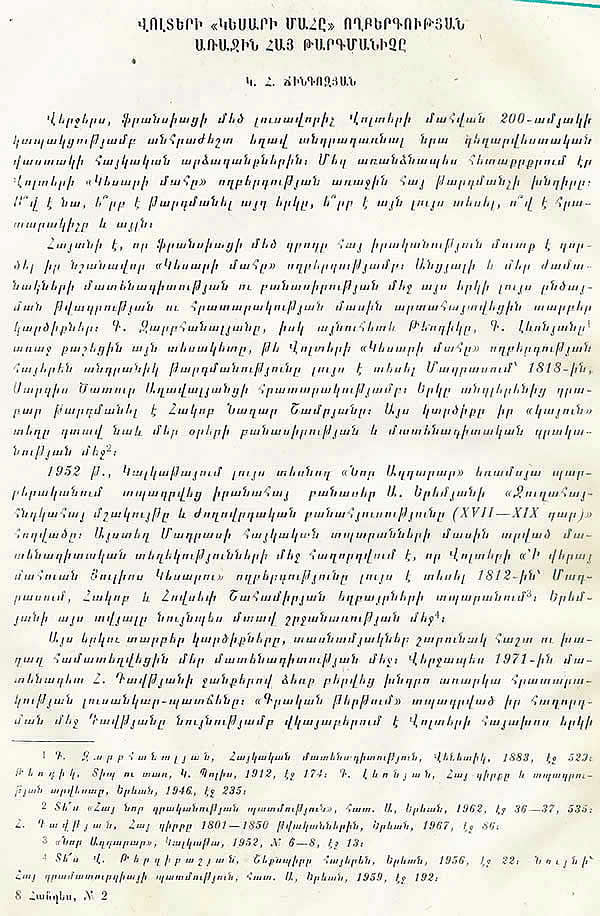 ՎՈԼՏԵՐԻ «ԿԵՍԱՐԻ ՄԱՀԸ» ՈՂԲԵՐԳՈՒԹՅԱՆ
ԱՌԱՋԻՆ ՀԱՅ ԹԱՐԳՄԱՆԻՉԸ
Կ. Հ. ՃԻՆԳՈԶՅԱՆ
Վերջերս, ֆրանսիացի մեծ լուսավորիչ Վոլտերի մահվան 200-ամյակի
կապակցությամբ անհրաժեշտ եղավ անդրադառնալ նրա գեղարվեստական
վաստակի հայկական արձագանքներին։ Մեզ առանձնապես հետաքրքրում էր
Վոլտերի «Կեսարի մահը» ողբերգության առաջին հայ թարգմանչի խնդիրը։
Ո՞վ է նա, ե՞րբ է թարգմանել այդ երկը, ե՞րբ է այն լույս տեսել, ո՞վ է հրա-
տարակիչը և այլն։
Հայտնի է, որ ֆրանսիացի մեծ գրողը հայ իրականություն մուտք է գոր-
ծել իր նշանավոր «Կեսարի մահը» ողբերգությամբ։ Անցյալի և մեր ժամա-
նակների մատենագիտության ու բանասիրության մեջ այս երկի լույս ընծայ-
ման թվագրության ու հրատարակության մասին արտահայտվեցին տարբեր
կարծիքներ։ Գ. Զարբհանալյանը, իսկ այնուհետև Թեոդիկը, Գ. Լևոնյանը¹
առաջ քաշեցին այն տեսակետը, թե Վոլտերի «Կեսարի մահը» ողբերգության
հայերեն անդրանիկ թարգմանությունը լույս է տեսել Մադրասում՝ 1818-ին,
Սարգիս Ծատուր Աղավալյանցի հրատարակությամբ։ Երկը անգլերենից գրա-
բար թարգմանել է Հակոբ Նազար Շամրյանը։ Այս կարծիքը իր «կայուն»
տեղը գտավ նաև մեր օրերի բանասիրության և մատենագիտական գրակա-
նության մեջ²։
1952 թ., Կալկաթայում լույս տեսնող «Նոր Ազդարար» եռամսյա պար-
բերականում տպագրվեց իրանահայ բանասեր Ա. Երեմյանի «Ջուղահայ-
հնդկահայ մշակույթը և ժողովրդական բանահյուսությունը (XVII—XIX դար)»
հոդվածը։ Այստեղ Մադրասի հայկական տպարանների մասին տրված մա-
տենագիտական տեղեկությունների մեջ հաղորդվում է, որ Վոլտերի «Ի վերայ
մահուան Յուլիոս Կեսարու» ողբերգությունը լույս է տեսել 1812-ին՝ Մադ-
րասում, Հակոբ և Հովսեփ Շահամիրյան եղբայրների տպարանում³։ Երեմ-
յանի այս տվյալը նույնպես մտավ շրջանառության մեջ⁴։
Այս երկու տարբեր կարծիքները, տասնամյակներ շարունակ հաշտ ու խա-
ղաղ համատեղվեցին մեր մատենագիտության մեջ։ Վերջապես 1971-ին մա-
տենագետ Հ. Դավթյանի ջանքերով ձեռք բերվեց խնդրո առարկա հրատարա-
կության լուսանկար-պատճենը։ «Գրական թերթում» տպագրված իր հաղորդ-
ման մեջ Դավթյանը նույնությամբ վկայաբերում է Վոլտերի հայախոս երկի
¹ Գ. Զարբհանալյան, Հայկական մատենագիտություն, Վենետիկ, 1883, էջ 529։
Թեոդիկ, Տիպ ու տառ, Կ. Պոլիս, 1912, էջ 174։ Գ. Լևոնյան, Հայ գիրքը և տպագրու-
թյան արվեստը, Երևան, 1946, էջ 235։
² Տե՛ս «Հայ նոր գրականության պատմություն», հատ. Ա, Երևան, 1962, էջ 36—37, 535։
Հ. Դավթյան, Հայ գիրքը 1801—1850 թվականներին, Երևան, 1967, էջ 86։
³ «Նոր Ազդարար», Կալկաթա, 1952, № 6—8, էջ 13։
⁴ Տե՛ս Վ. Թերզիբաշյան, Շեքսպիրը հայերեն, Երևան, 1956, էջ 22։ Նույնի՝
Հայ դրամատուրգիայի պատմություն, հատ. Ա, Երևան, 1959, էջ 192։
8 Հանդես, № 2